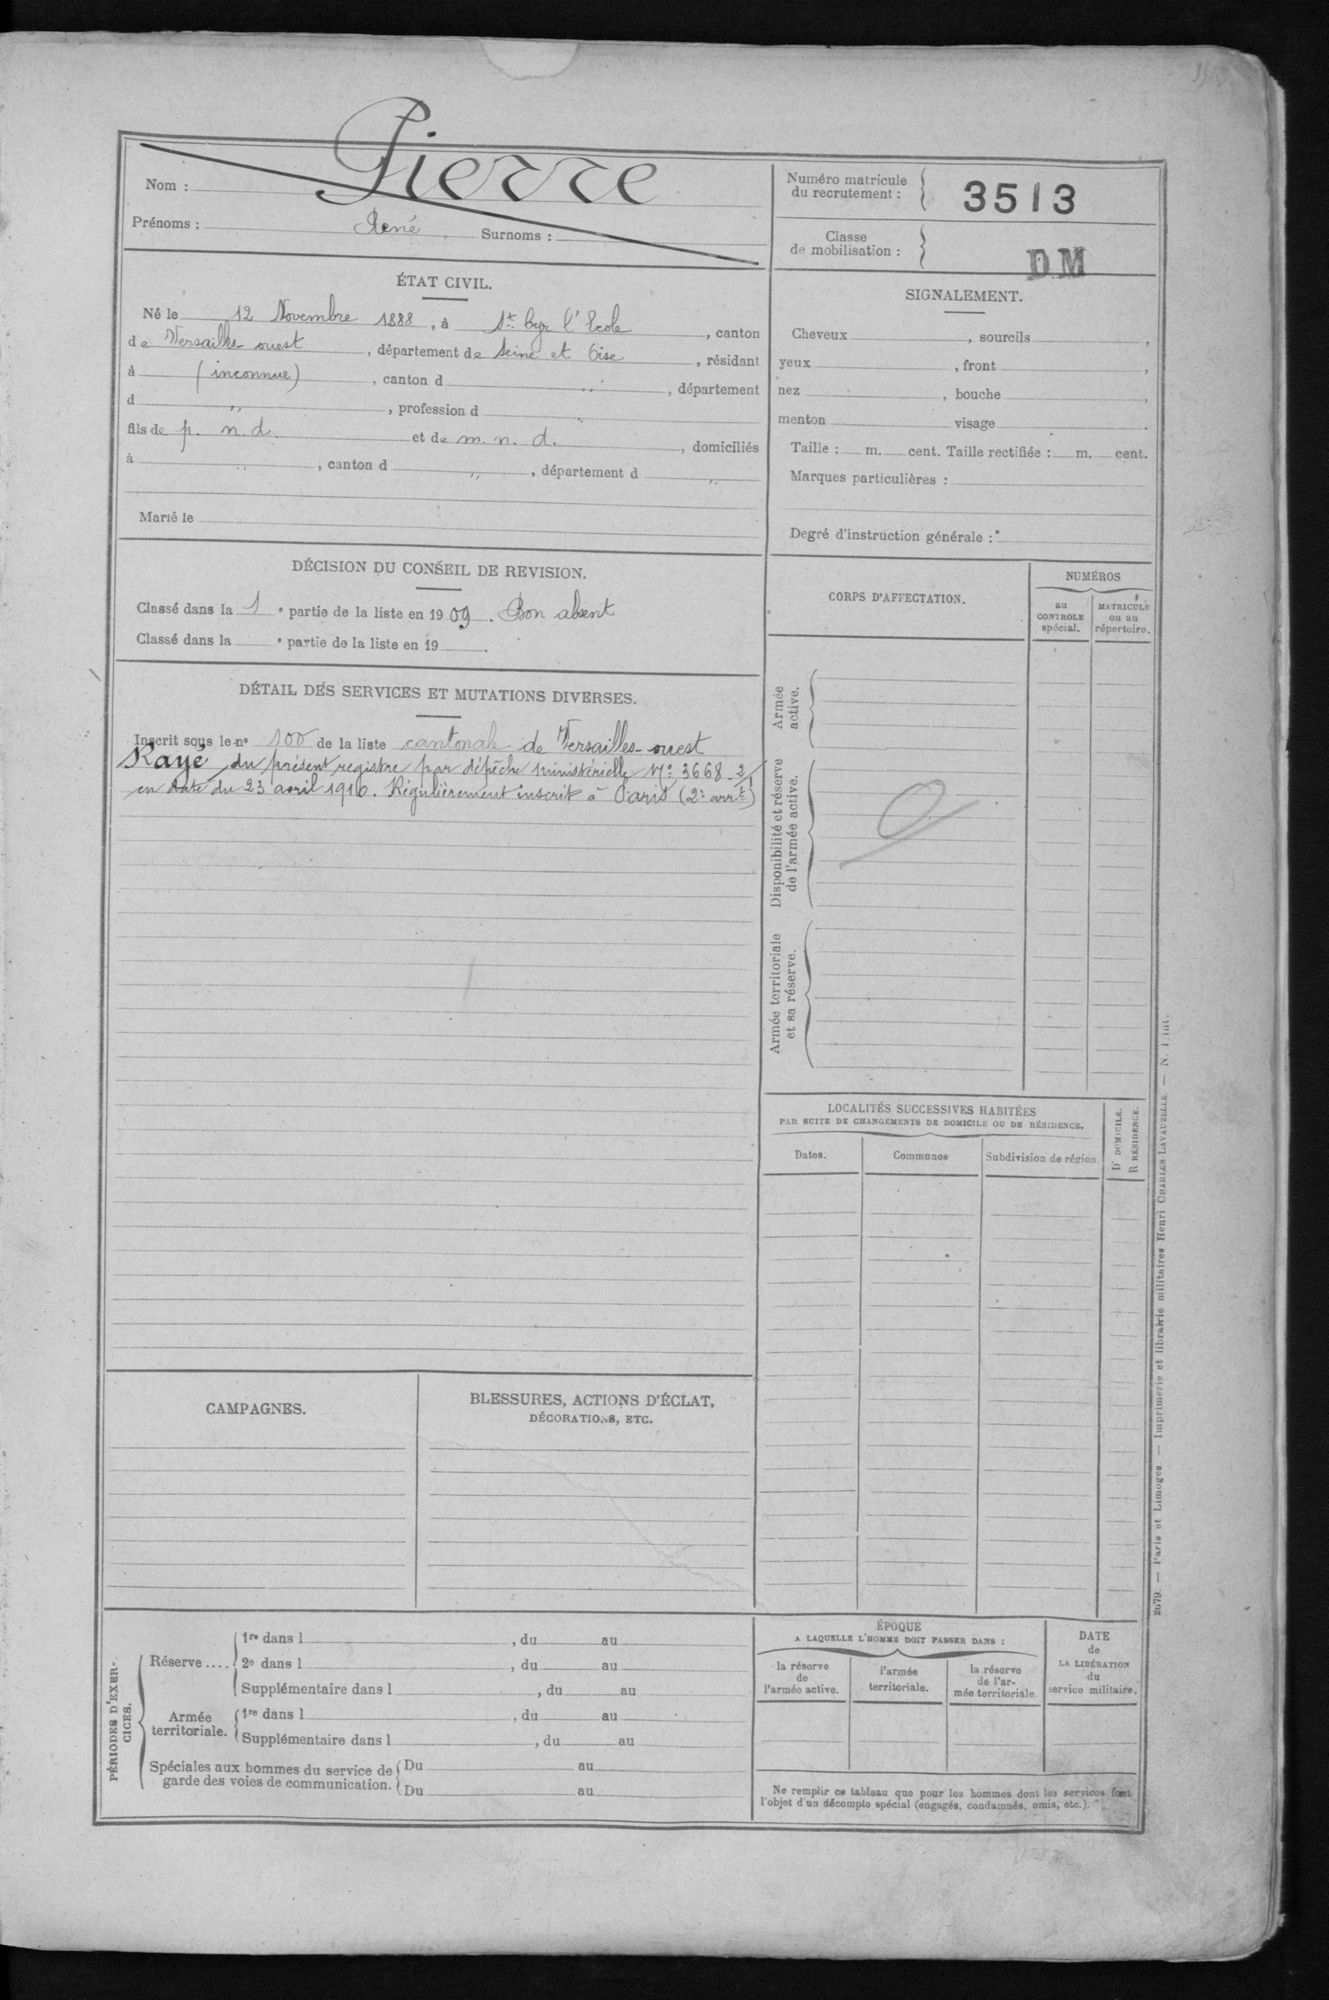 Nom : Pierre
Prénoms : René Surnoms :
Numéro matricule
du recrutement : 3513
Classe
de mobilisation : DM
ÉTAT CIVIL.
Né le 12 Novembre 1888, à St Cyr l'Ecole, canton
de Versailles-ouest, département de Seine et Oise, résidant
à (inconnue), canton d ,, , département
d ,, , profession d ,,
fils de p. n. d. et de m. n. d., domiciliés
à ,, , canton d ,, , département d ,,
Marié le
SIGNALEMENT.
Cheveux , sourcils ,
yeux , front ,
nez , bouche ,
menton visage .
Taille : m. cent. Taille rectifiée : m. cent.
Marques particulières :
Degré d'instruction générale :
DÉCISION DU CONSEIL DE REVISION.
Classé dans la 1 e partie de la liste en 1909. Bon absent
Classé dans la e partie de la liste en 19 .
DÉTAIL DES SERVICES ET MUTATIONS DIVERSES.
Inscrit sous le no 100 de la liste cantonale de Versailles-ouest
Rayé du présent registre par dépêche ministérielle No 3668-2/1
en date du 23 avril 1916. Régulièrement inscrit à Paris (2e arrt)
CORPS D'AFFECTATION.
NUMÉROS
au
CONTROLE
spécial.
MATRICULE
ou au
répertoire.
Armée
active.
Disponibilité et réserve
de l'armée active.
Armée territoriale
et sa réserve.
LOCALITÉS SUCCESSIVES HABITÉES
PAR SUITE DE CHANGEMENTS DE DOMICILE OU DE RÉSIDENCE.
Dates.
Communes
Subdivision de région.
D DOMICILE.
R RÉSIDENCE.
CAMPAGNES.
BLESSURES, ACTIONS D'ÉCLAT,
DÉCORATIONS, ETC.
PÉRIODES D'EXER-
CICES.
Réserve .... 1re dans l , du au
2e dans l , du au
Supplémentaire dans l , du au
Armée
territoriale. 1re dans l , du au
Supplémentaire dans l , du au
Spéciales aux hommes du service de
garde des voies de communication. Du au
Du au
ÉPOQUE
A LAQUELLE L'HOMME DOIT PASSER DANS :
la réserve
de
l'armée active.
l'armée
territoriale.
la réserve
de l'ar-
mée territoriale
DATE
de
LA LIBÉRATION
du
service militaire.
Ne remplir ce tableau que pour les hommes dont les services font
l'objet d'un décompte spécial (engagés, condamnés, omis, etc.).
2679. — Paris et Limoges. — Imprimerie et librairie militaires Henri CHARLES-LAVAUZELLE. — N. 1 int.